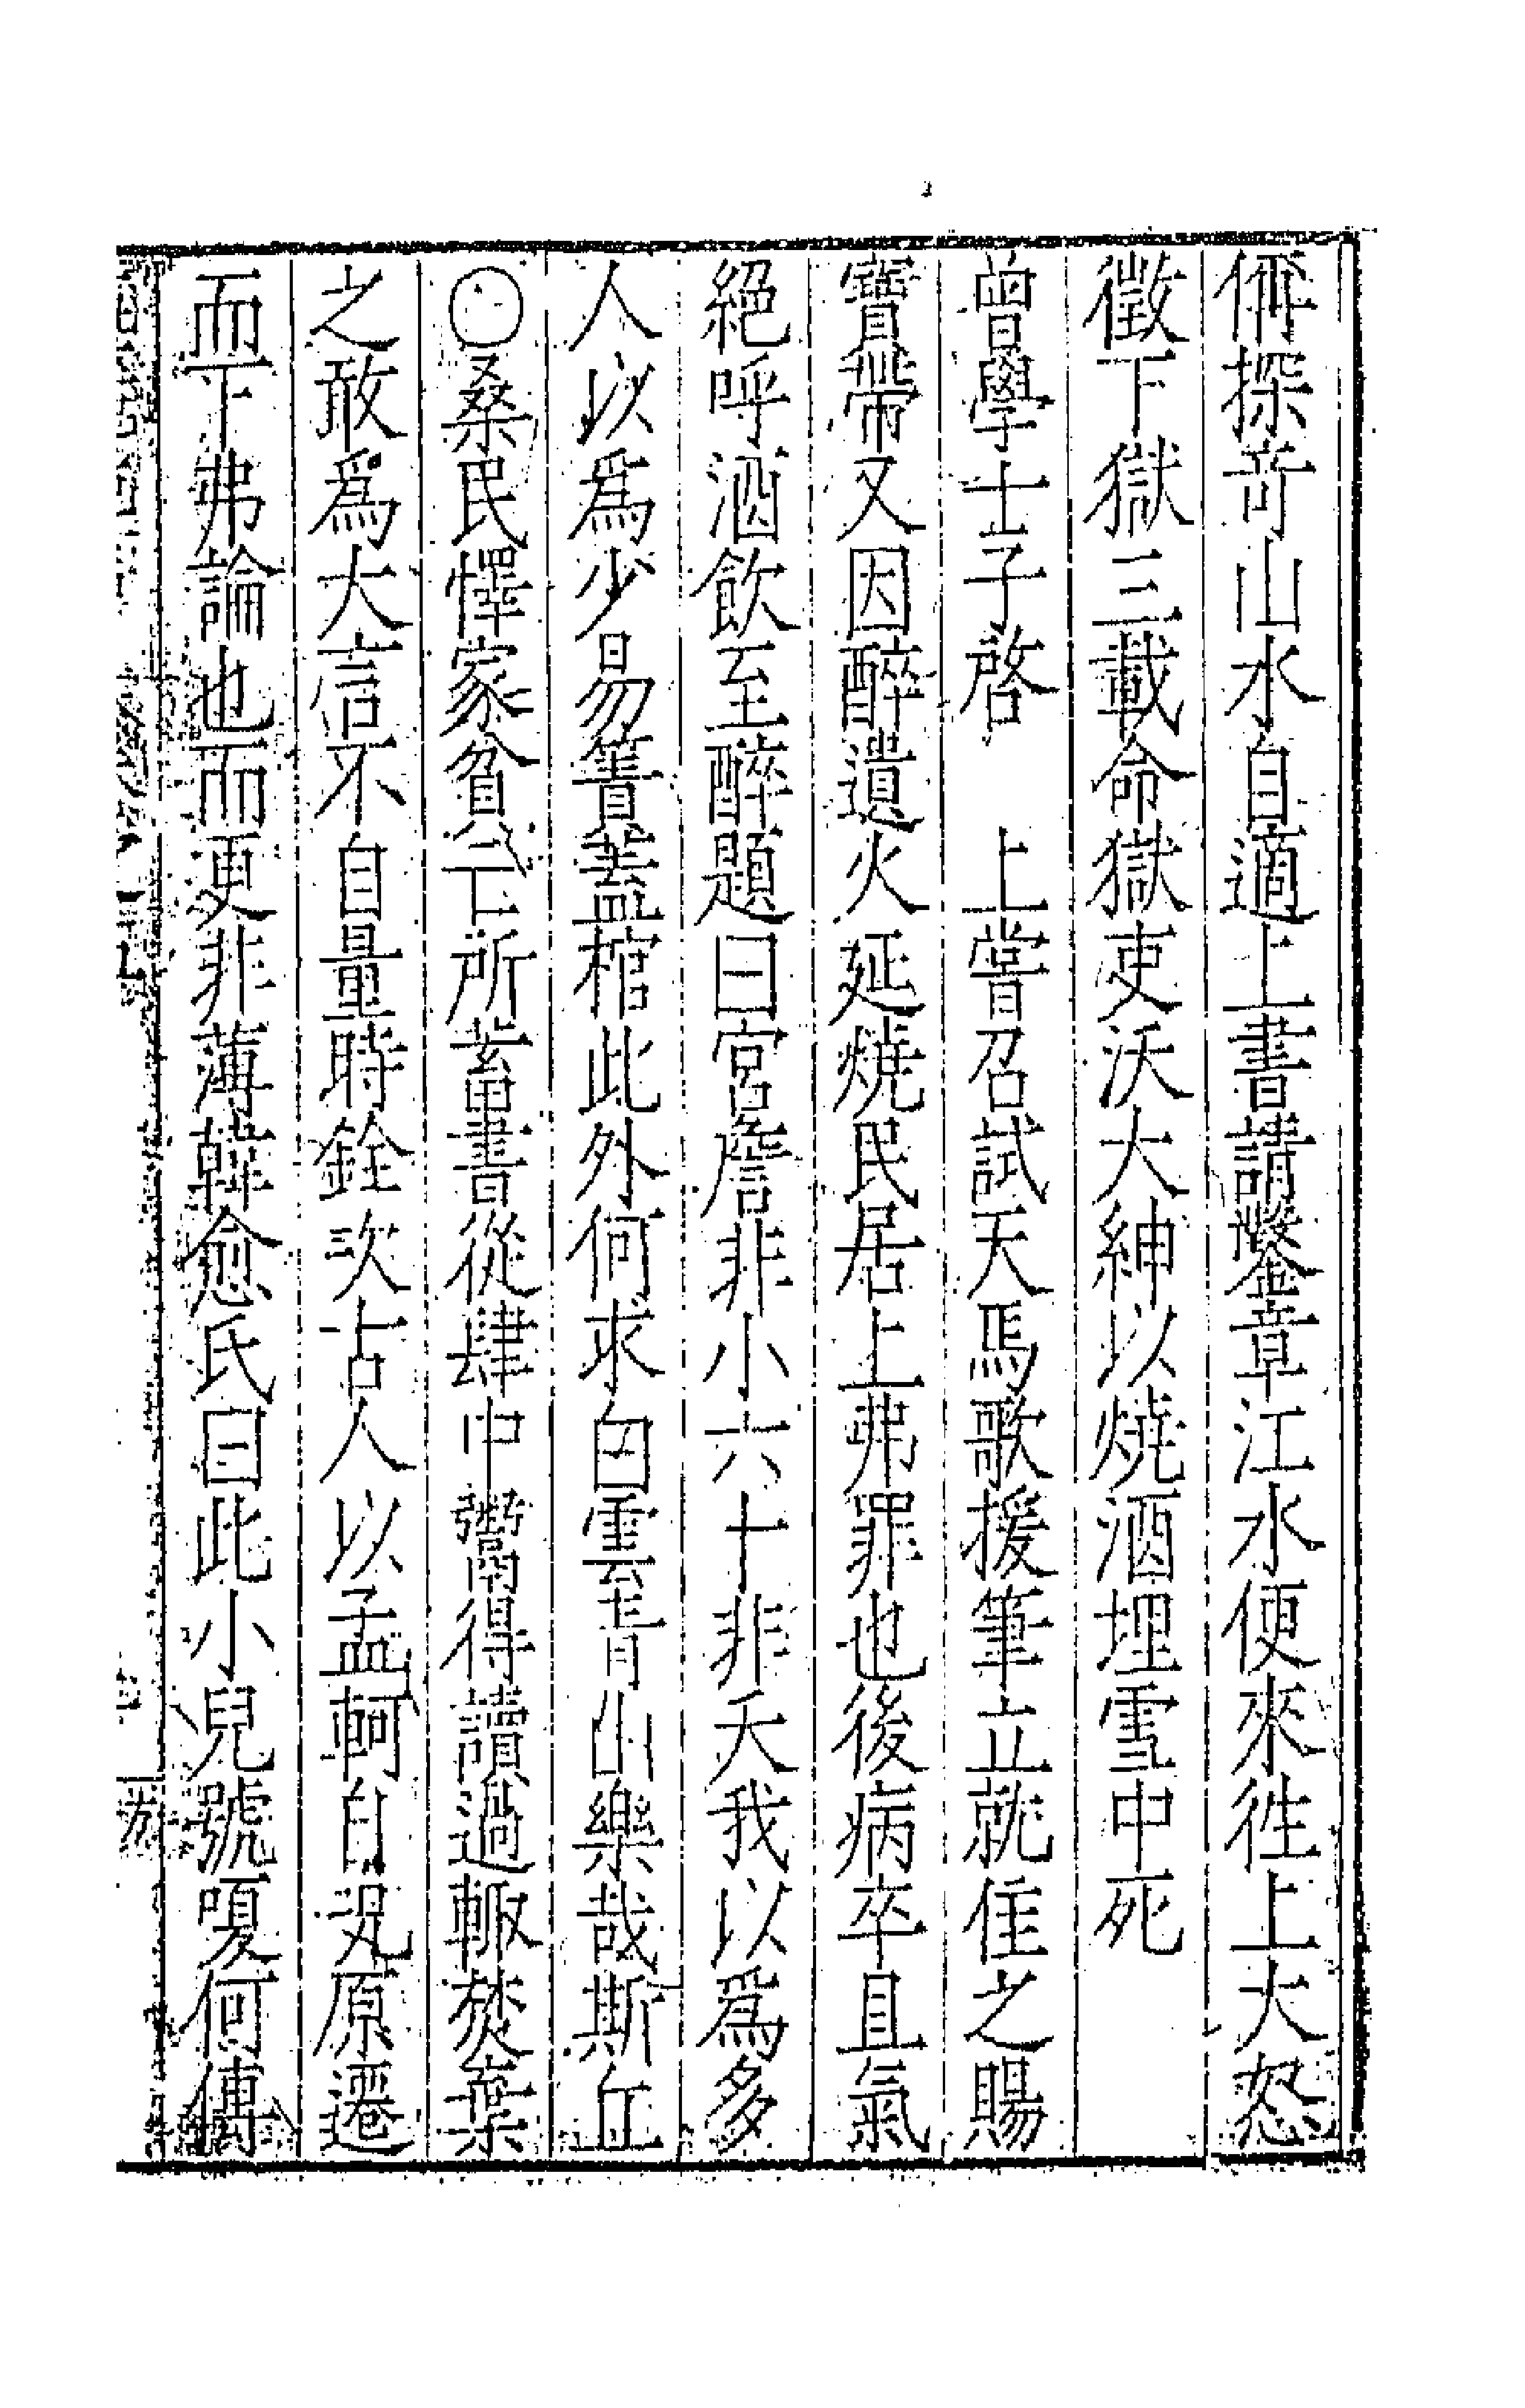 俻探奇山水自適上書請鑿章江水便來徃上大怒
徵下獄三載命獄吏沃大紳以燒酒埋雪中死
曾學士子啓　上嘗召試天馬歌援筆立就佳之賜
寶帶又因醉遺火延燒民居上弗罪也後病卒且氣
絕呼酒飲至醉題曰宮詹非小六十非夭我以爲多
人以爲少易簀蓋棺此外何求白雲青山樂哉斯丘
〇桑民懌家貧亡所蓄書從肆中鬻得讀過輙焚棄
之敢爲大言不自量時銓次古人以孟軻自況原遷
而下弗論也而更非薄韓愈氏曰此小兒號嗄何傳